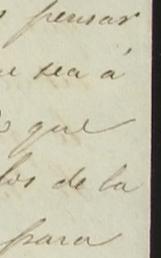 pensar
sea á
que
los de la
para